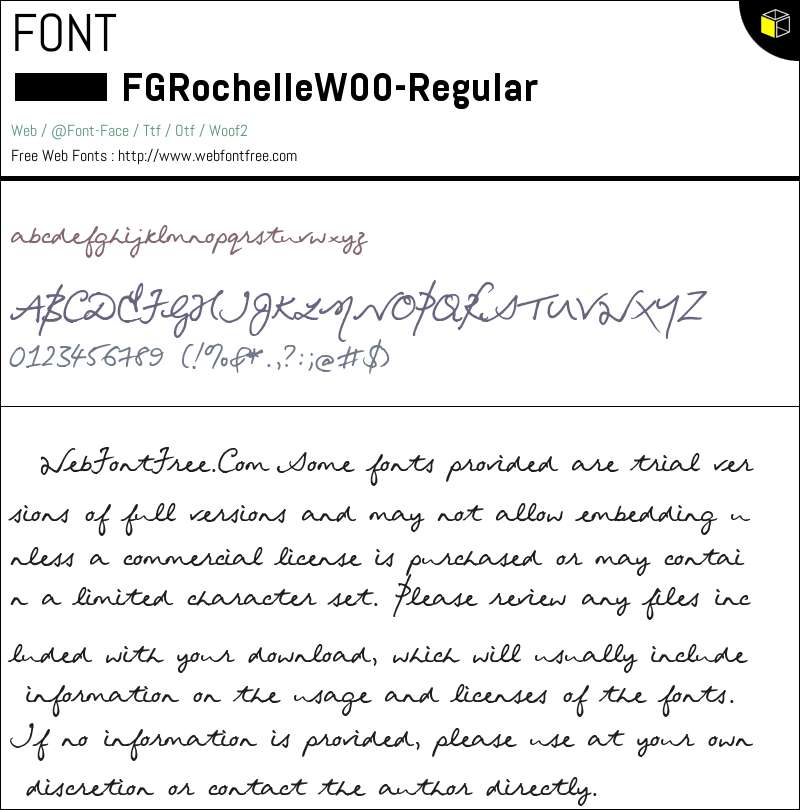 FONT
FGRochelleW00-Regular
Web / @Font-Face / Ttf / Otf / Woof2
Free Web Fonts : http://www.webfontfree.com
abcdefghijklmnopqrstuvwxyz
ABCDEFGHIJKLMNOPQRSTUVWXYZ
0123456789 (!%&*.,?:;@#$)
WebFontFree.Com Some fonts provided are trial ver
sions of full versions and may not allow embedding u
nless a commercial license is purchased or may contai
n a limited character set. Please review any files inc
luded with your download, which will usually include
information on the usage and licenses of the fonts.
If no information is provided, please use at your own
discretion or contact the author directly.